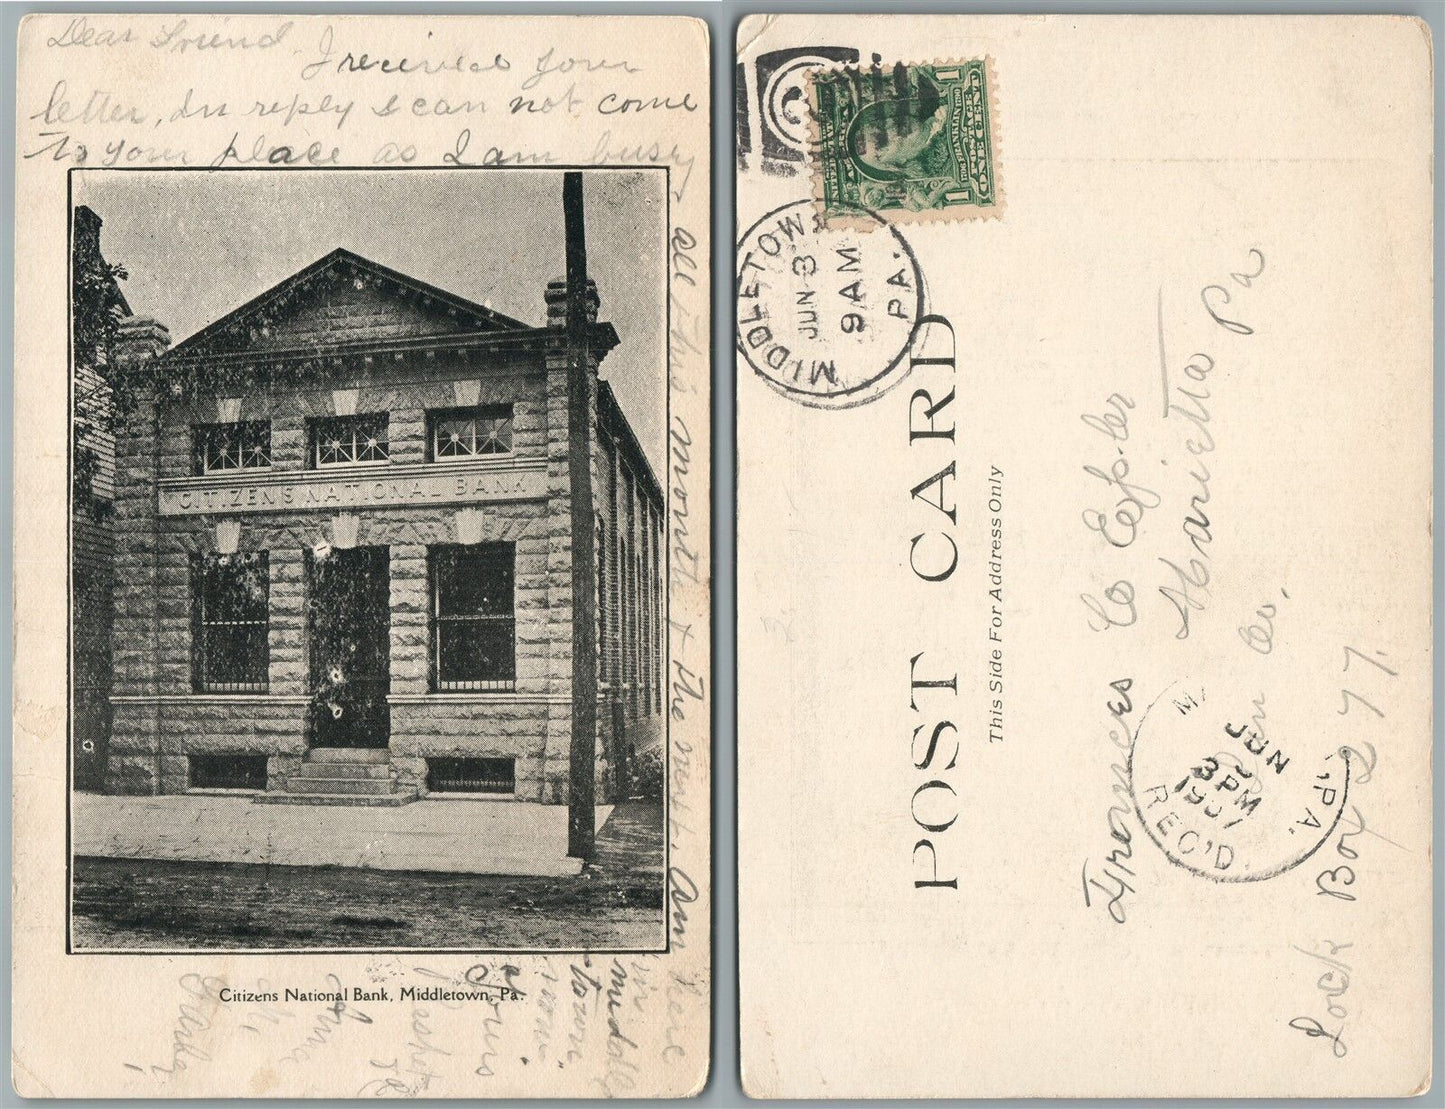 Dear Friend. I received your
letter, In reply I can not come
to your place as I am busy
all this month & the next. Am
here
in
middle
town
now.
Yours
CITIZENS NATIONAL BANK
Citizens National Bank, Middletown, Pa.
MIDDLETOWN PA.
JUN 3
9 AM
1
POSTAGE
ONE CENT
1
POST CARD
This Side For Address Only
Frances Co Epler
Marietta Pa
Co.
Lock Box 277.
JUN
3
3 PM
1907
REC'D.
PA.